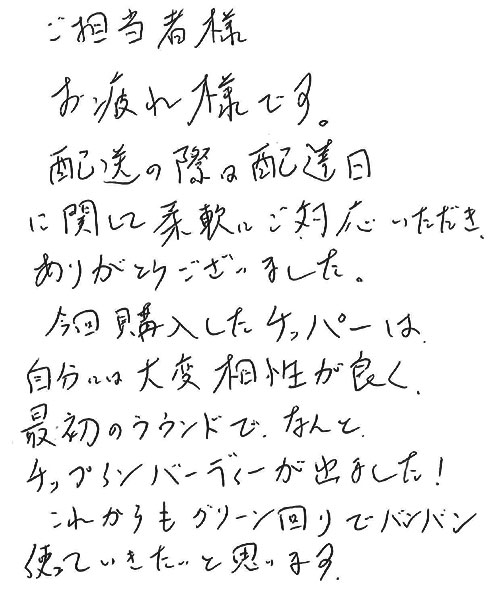 ご担当者様
お疲れ様です。
配送の際は配達日
に関して柔軟にご対応いただき、
ありがとうございました。
今回購入したチッパーは、
自分には大変相性が良く、
最初のラウンドで、なんと、
チップインバーディーが出ました!
これからもグリーン回りでバンバン
使っていきたいと思います。